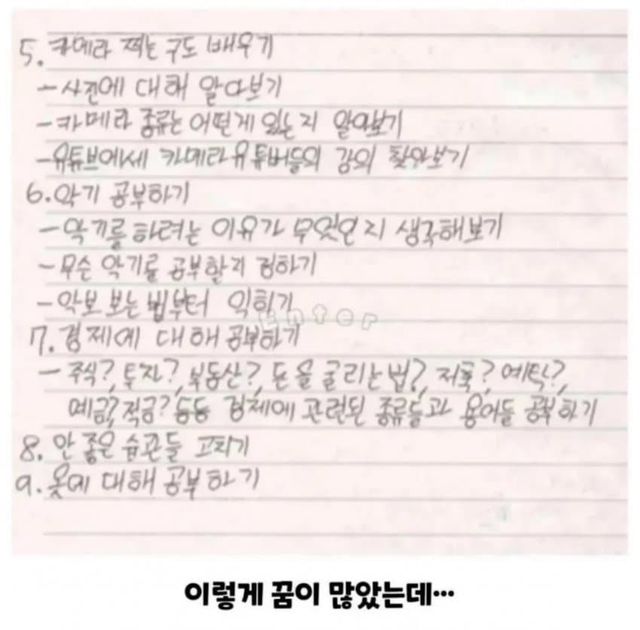 5. 카메라 찍는 구도 배우기
- 사진에 대해 알아보기
- 카메라 종류는 어떤게 있는지 알아보기
- 유튜브에세 카메라 유튜버들의 강의 찾아보기
6. 악기 공부하기
- 악기를 하려는 이유가 무엇인지 생각해보기
- 무슨 악기를 공부할지 정하기
- 악보 보는 법부터 익히기
Enter
7. 경제에 대해 공부하기
- 주식?, 투자?, 부동산?, 돈을 굴리는 법?, 저축?, 예탁?,
예금?, 적금? 등등 경제에 관련된 종류들과 용어들 공부하기
8. 안 좋은 습관들 고치기
9. 옷에 대해 공부하기
이렇게 꿈이 많았는데...